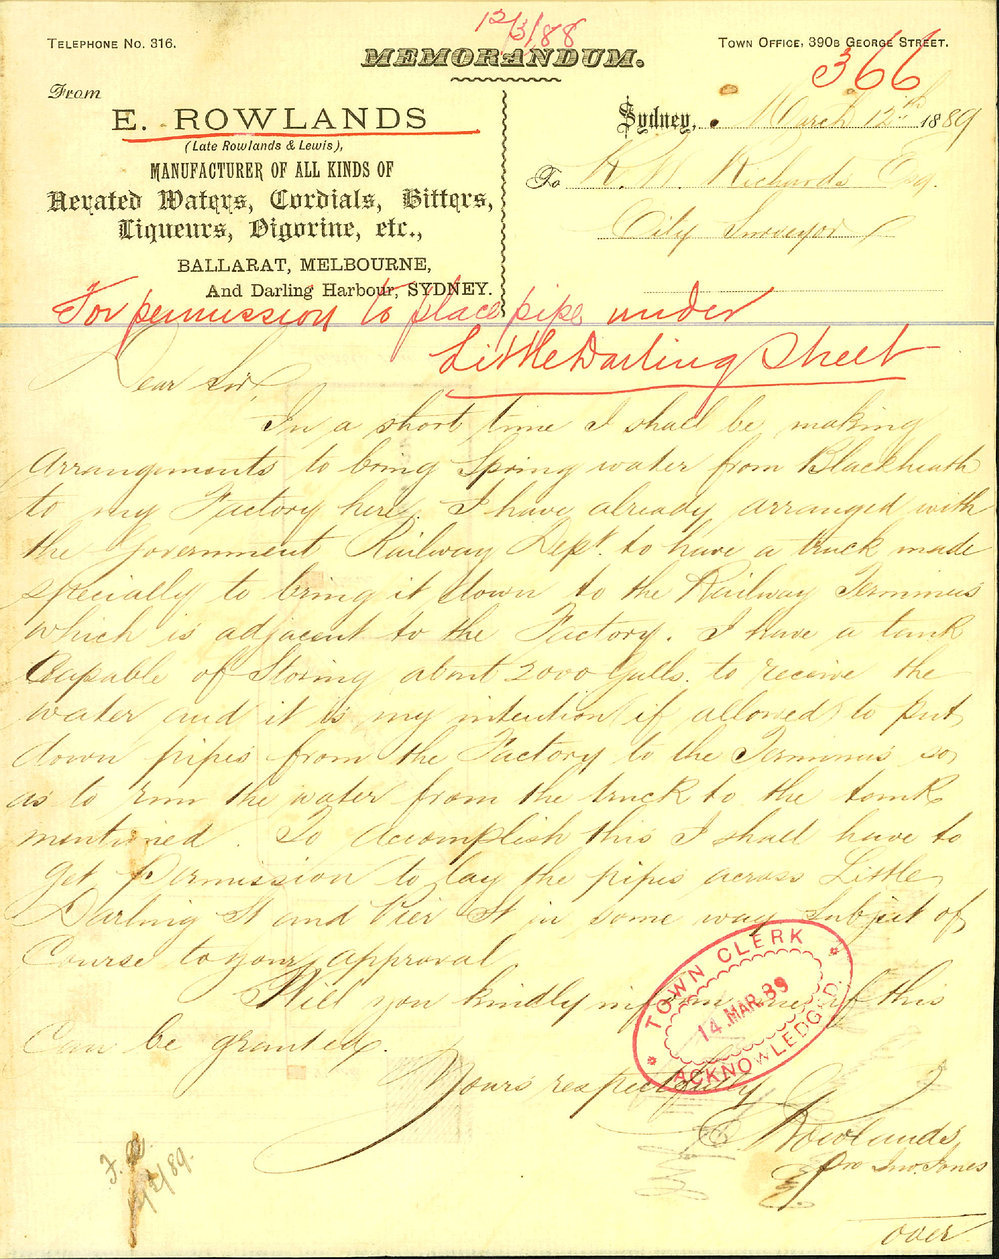 12/3/88
TELEPHONE NO. 316.
MEMORANDUM.
TOWN OFFICE, 390B GEORGE STREET.
366
From
E. ROWLANDS
(Late Rowlands & Lewis),
MANUFACTURER OF ALL KINDS OF
Aerated Waters, Cordials, Bitters,
Liqueurs, Digorine, etc.,
BALLARAT, MELBOURNE,
And Darling Harbour, SYDNEY.
Sydney, March 12th 1889
To R. W. Richards Esq.
City Surveyor
For permission to place pipe under
Little Darling Street
Dear Sir,
In a short time I shall be making
arrangements to bring Spring water from Blackheath
to my Factory here. I have already arranged with
the Government Railway Dept. to have a truck made
specially to bring it down to the Railway Terminus
which is adjacent to the Factory. I have a tank
Capable of Storing about 2000 Galls. to receive the
water and it is my intention (if allowed) to put
down pipes from the Factory to the Terminus so
as to run the water from the truck to the tank
mentioned. To accomplish this I shall have to
get Permission to lay the pipes across Little
Darling St and Pier St in some way subject of
Course to your approval
Will you kindly inform me if this
Can be granted.
TOWN CLERK
14 MAR. 89
ACKNOWLEDGED
Yours respectfully
E Rowlands
pro Jno. Jones
over